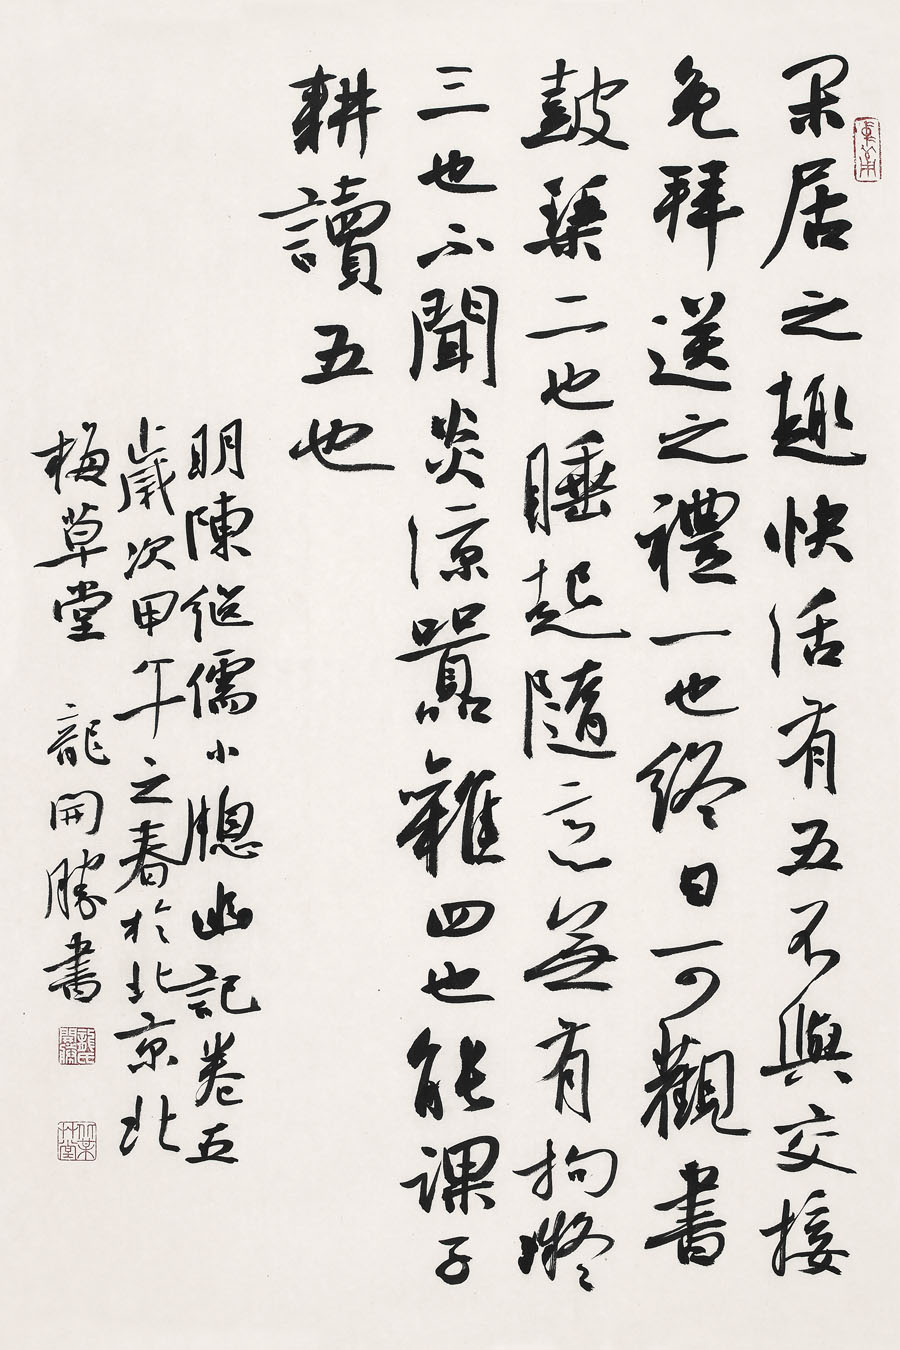 閑居之趣快活有五不與交接
免拜送之禮一也終日可觀書
鼓琴二也睡起隨意無有拘礙
三也不聞炎涼囂雜四也能課子
耕讀五也
明陳繼儒小牎幽記卷五
歲次甲午之春於北京北
梅草堂 龍開勝書